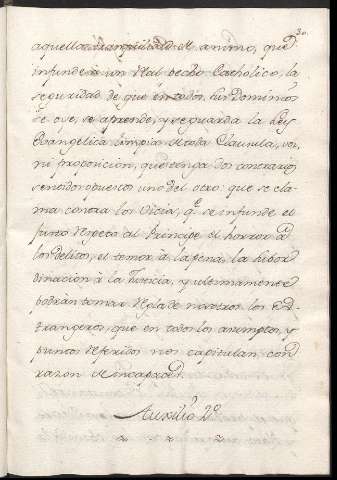 30.
aquella tranquilidad de animo, que
infunde à un Real pecho Catholico, la
seguridad de que en todos sus Dominios
se oye, se aprende, y se guarda la Ley
Evangelica sin Clausula, voz,
ni proposicion, que tenga dos contrarios
sentidos opuestos uno del otro: que se cla-
ma contra los Vicios, q.e se infunde el
justo respeto al Principe, el horror à
los delitos, el temor à la pena, la subor
dinacion à la Justicia, y ultimamente
podran tomar Regla de nosotros los Ex-
trangeros, que en todos los asumptos, y
puntos referidos nos capitulan con
razon de incapaces.
Auxilio 2.o